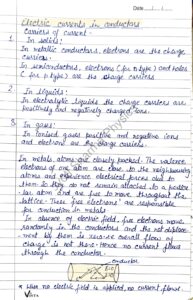 Date
Electric currents in conductors
Carriers of current -
1. In solids:
In metallic conductors, electrons are the charge
carriers.
In semiconductors, electrons (for n type) and holes
(for p type) are the charge carriers.
2. In liquids:
In electrolytic liquids the charge carriers are
positively and negatively charged ions.
3. In gases:
In ionised gases positive and negative ions
and electrons are the charge carriers.
In metals, atoms are closely packed. The valence
electrons of one atom are close to the neighbouring
atoms and experience electrical forces due to
them so they do not remain attached to a particular
atom and are free to move throughout the
lattice. These free electrons are responsible
for conduction in metals
In absence of electric field, free electrons move
randomly in the conductors and the net displacement
by them is zero. So overall flow of
charge is not there. Hence no current flows
through the conductor.
conductor
When no electric field is applied, no current flows